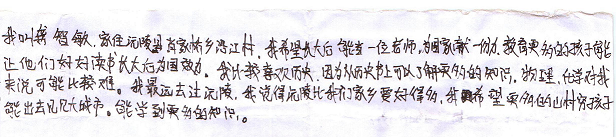 我叫 智敏,家住沅陵县肖家桥乡 江村,我希望长大后能当一位老师,为国家献一份力,教育更多的孩子能
让他们好好读书长大后为国效力。我比较喜欢历史,因为从历史中可以了解更多的知识。物理,化学对我
来说可能比较难。我最远去过沅陵,我觉得沅陵比我们家乡要好得多,我希望更多的山村穷孩子
能出去见见大城市。能学到更多的知识。